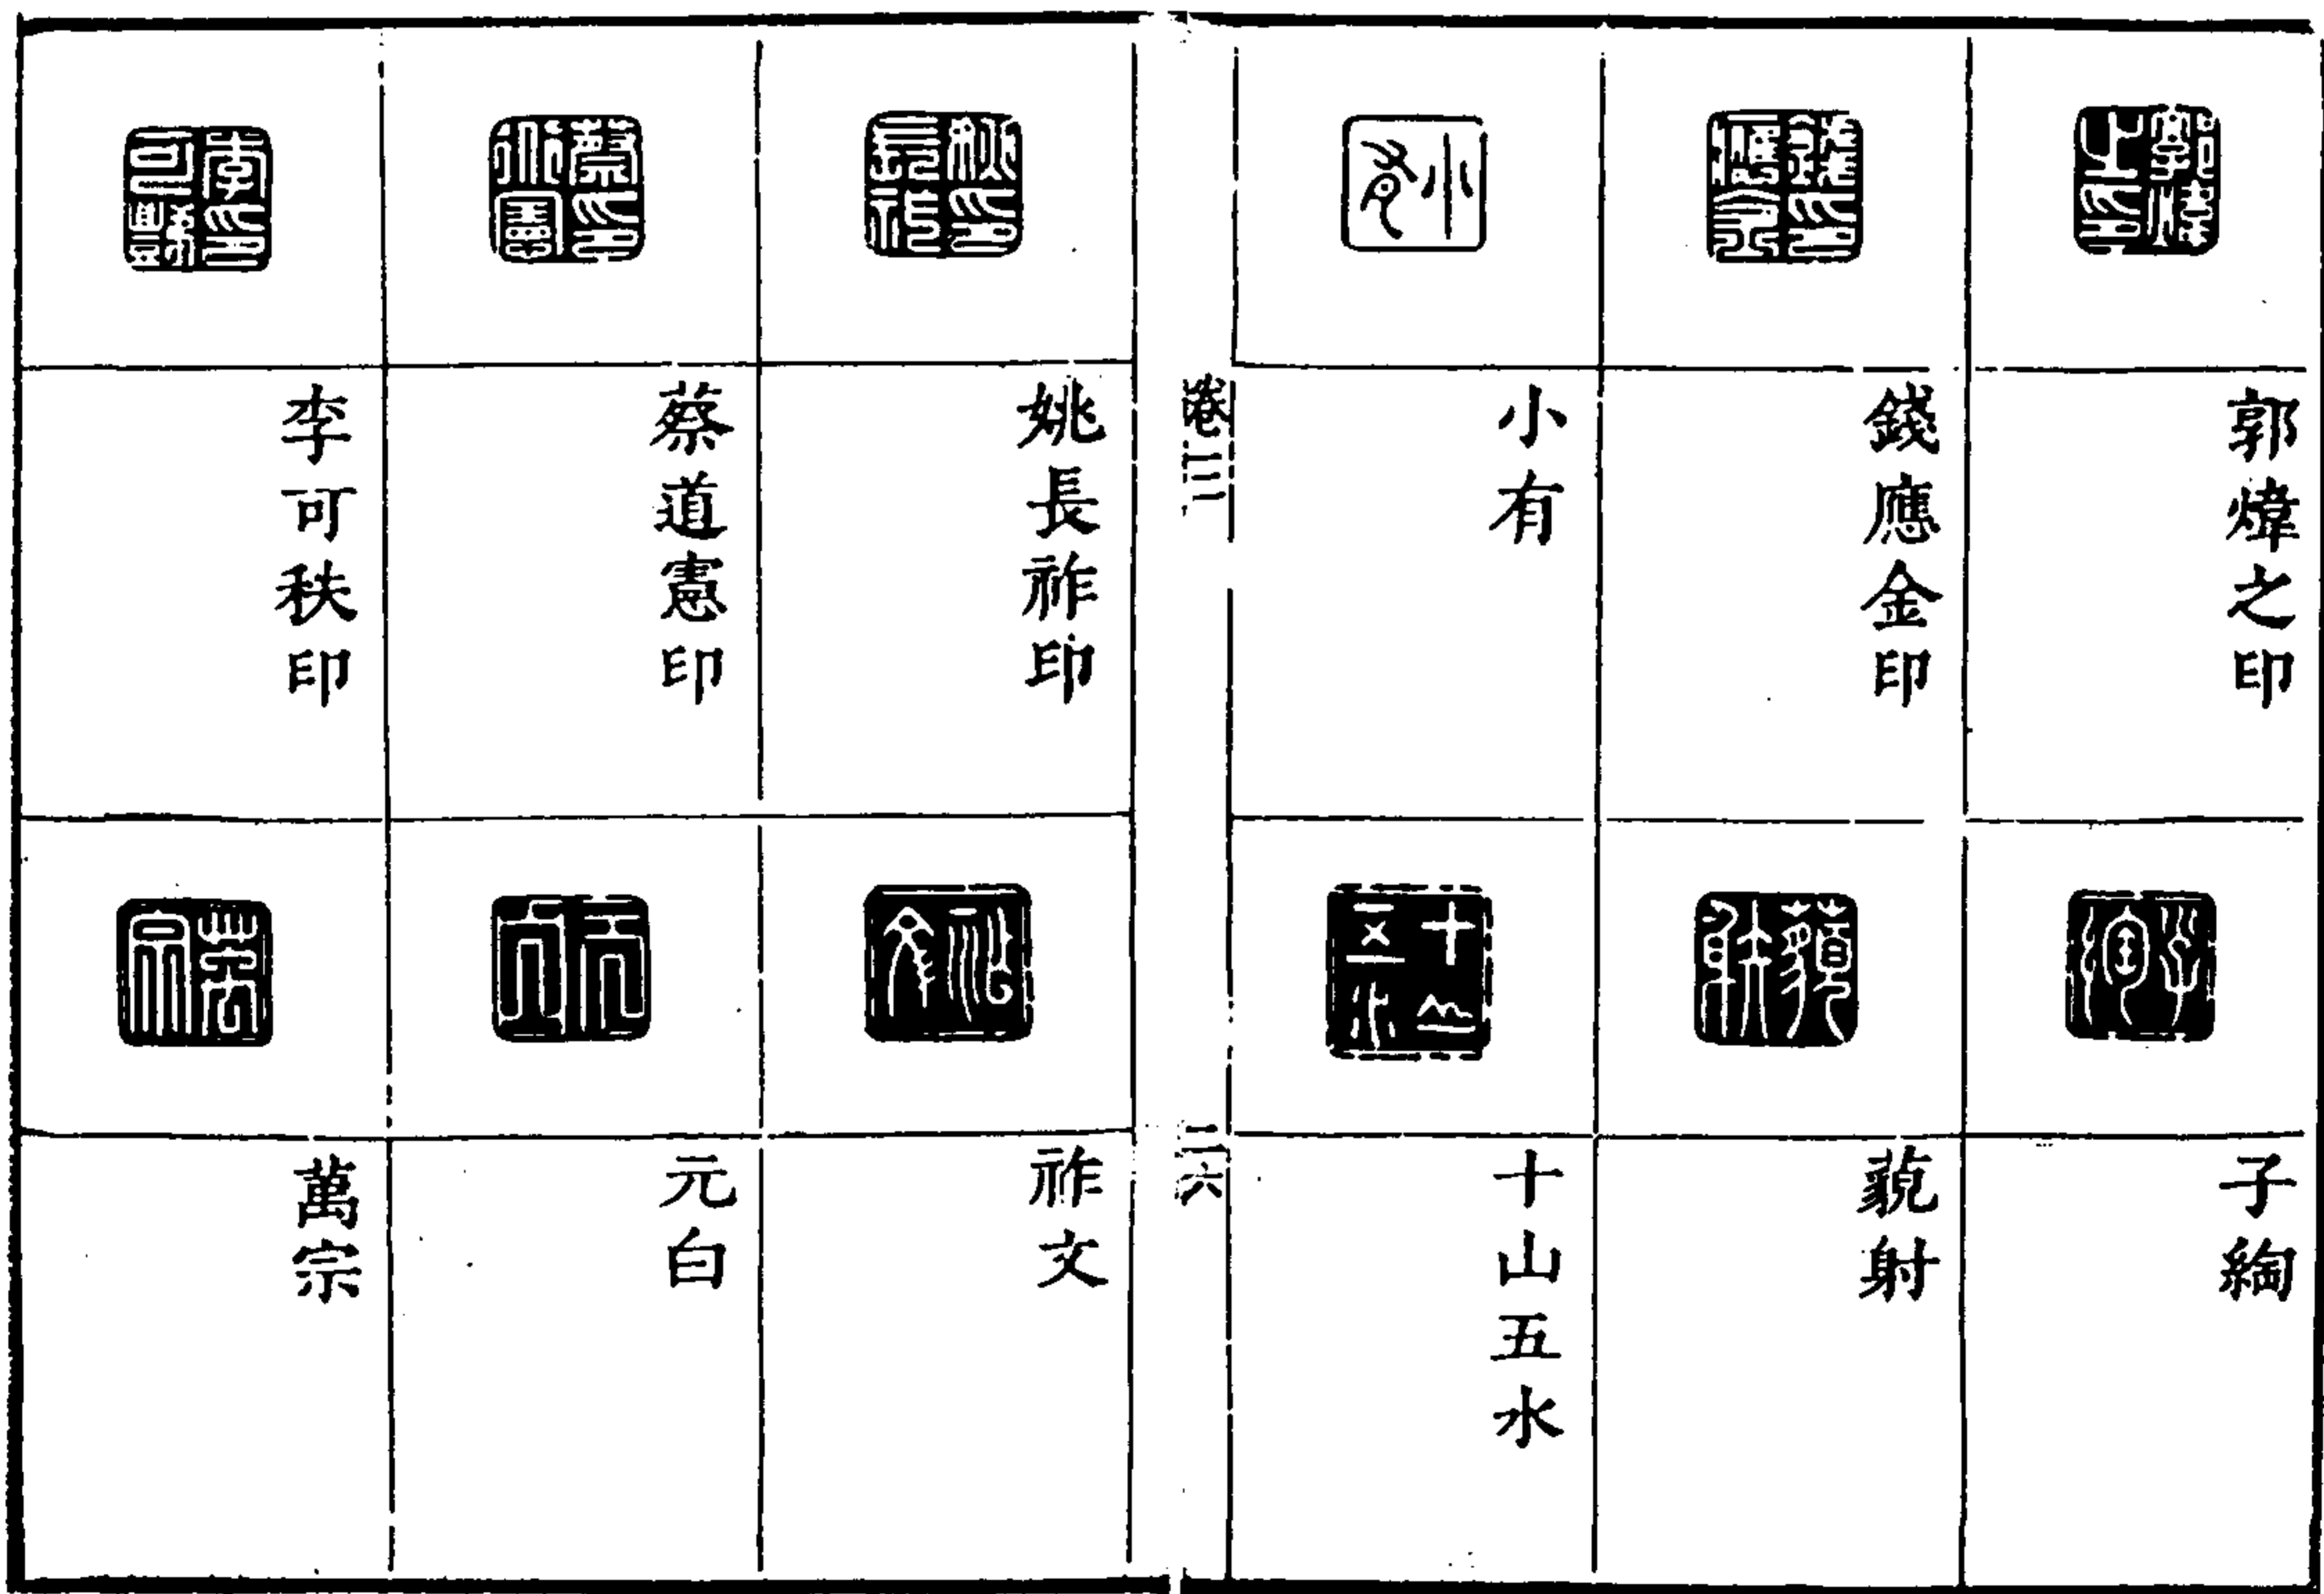 郭煒之印
子綯
錢應金印
藐射
小有
十山五水
卷三
二六
姚長祚印
祚文
蔡道憲印
元白
李可秩印
萬宗